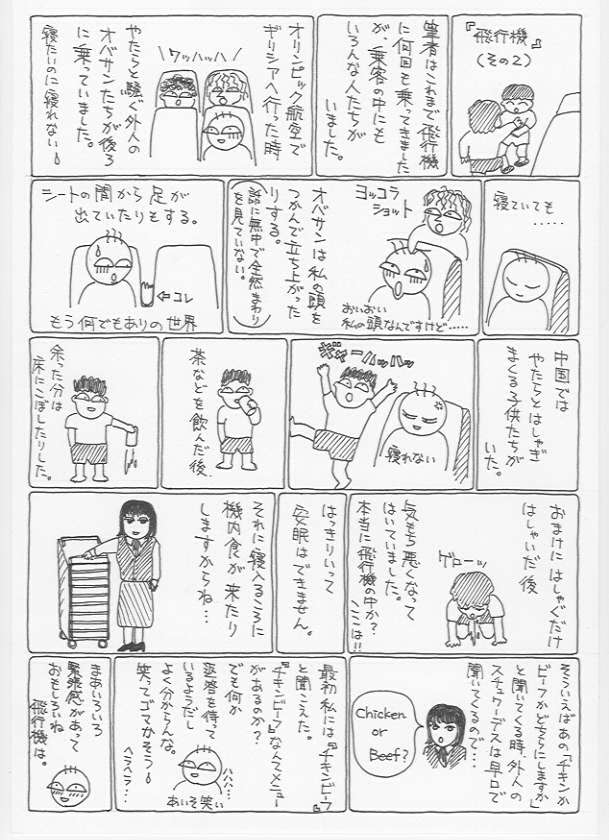 『飛行機』
(その2)
筆者はこれまで飛行機
に何回も乗ってきました
が、乗客の中にも
いろんな人たちが
いました。
オリンピック航空で
ギリシアへ行った時
ワッハッハ
やたらと騒ぐ外人の
オバサンたちが後ろ
に乗っていました。
寝たいのに寝れない!
寝ていても
・・・・・
ヨッコラ
ショット
おいおい
私の頭なんですけど・・・・・
オバサンは私の頭を
つかんで立ち上がった
りする。
(話に無中で全然まわり
を見ていない。)
シートの間から足が
出ていたりもする。
⇐コレ
もう何でもありの世界
中国では
やたらとはしゃぎ
まくる子供たちが
いた。
ギャーハッハッ
寝れない
茶などを飲んだ後、
余った分は
床にこぼしたりした。
おまけにはしゃぐだけ
はしゃいだ後
ゲローッ
気もち悪くなって
はいていました。
本当に飛行機の中か?
ここは!!
はっきりいって
安眠はできません。
それに寝入るころに
機内食が来たり
しますからね…
そういえばあの「チキンか
ビーフかどちらにしますか」
と聞いてくる時、外人の
スチュワーデスは早口で
聞いてくるので…
Chicken
or
Beef?
最初私には『チキンビーフ』
と聞こえた。
『チキンビーフ』なんてメニュー
があるのか?
でも何か
返答を待って
いるようだし
よく分からんな。
笑ってゴマかそう!
ヘラヘラ…
ハハハ…
あいそ笑い
まあいろいろ
緊張感があって
おもしろいね
飛行機は。